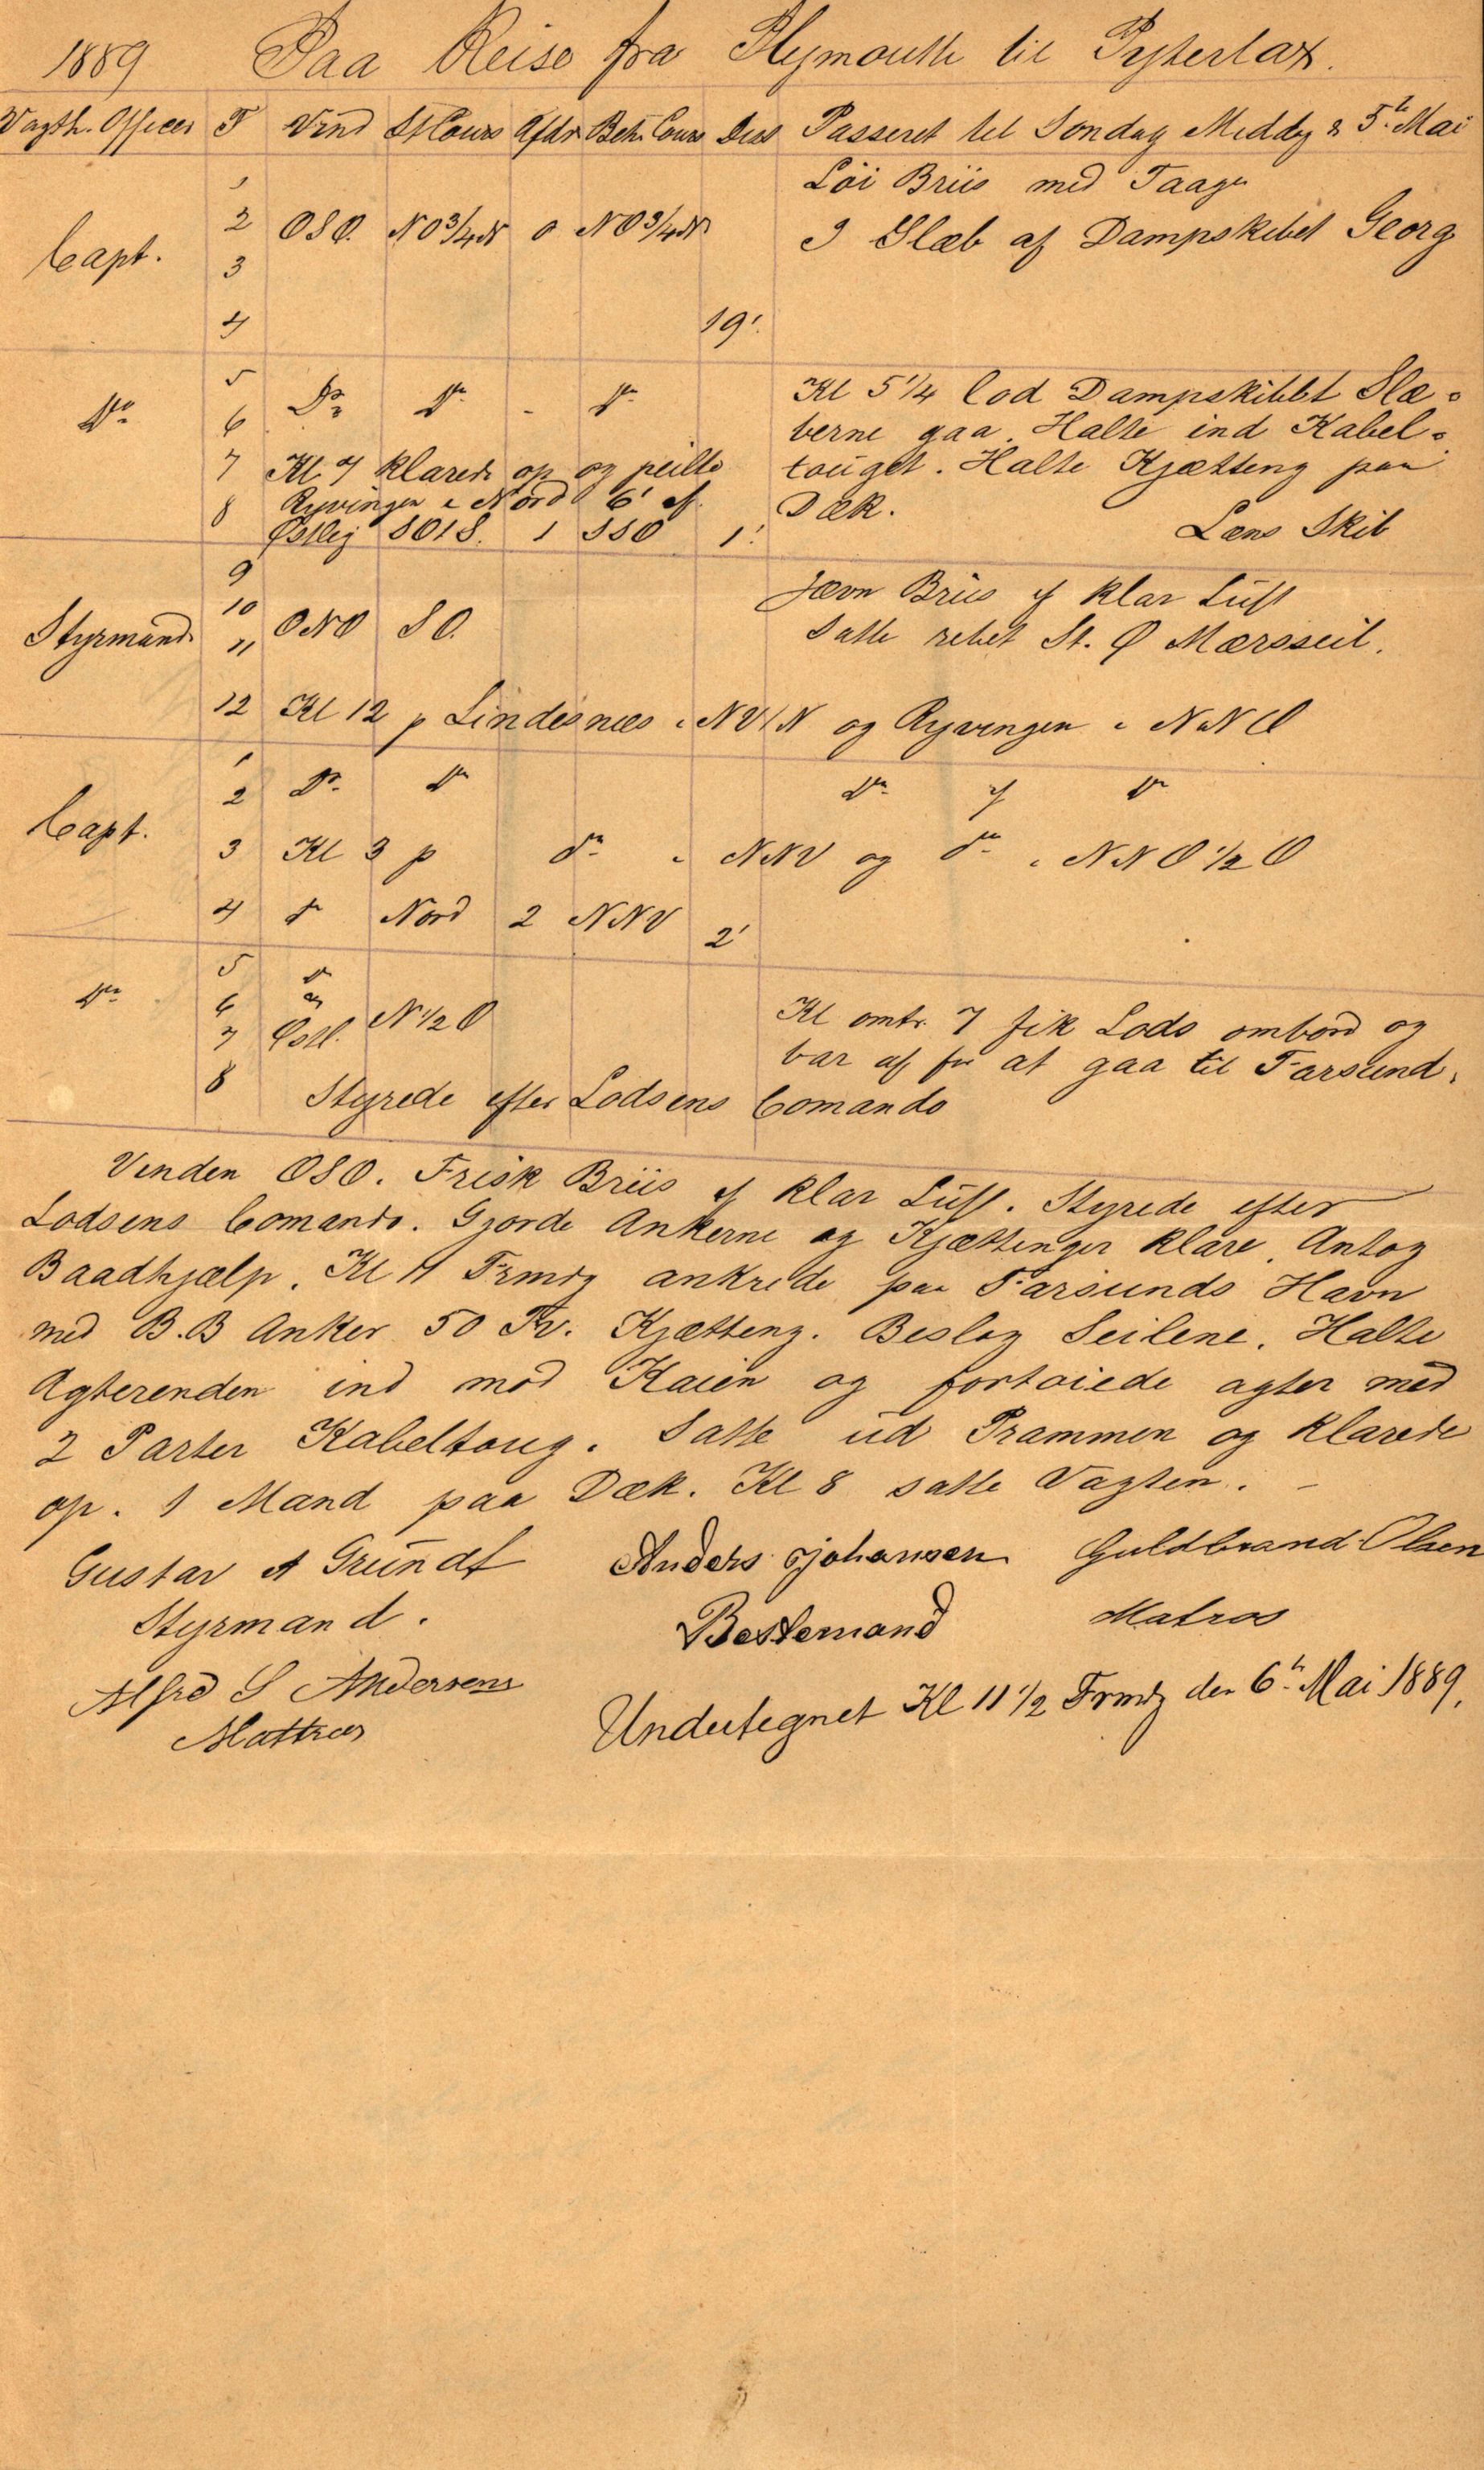 1889 Paa Reise fra Plymouth til Pyterlax.
Vagth. Officer T Vind St Cours Afdr. Beh. Cours Dist Passeret til Søndag Middg d 5te Mai
1 Løi Briis med Taage
Capt. 2 OSO. NO3/4N 0 NO3/4N I Slæb af Dampskibet Georg
3
4 19'.
5 Kl 5 1/4 lod Dampskibet Slæ-
Do 6 Do Do - Do berne gaa. Halte ind Kabel-
7 Kl 7 klarede op og peilte touget. Halte Kjætting paa
8 Ryvingen i Nord 6' af. Dæk.
Østlig SO1S. 1 SSO 1'. Læns Skib
9 Jævn Briis & klar Luft
10 ONO SO. Satte rebet St. & Mærsseil.
Styrmand. 11
12 Kl 12 p Lindesnæs i NV1N og Ryvingen i NNO
1
2 Do. Do Do & Do
Capt. 3 Kl 3 p do i NNV og do i NNO 1/2 O
4 do Nord 2 NNV 2'
5 do
Do 6 Kl omtr. 7 fik Lods ombord og
7 Østl. N 1/2 O bar af for at gaa til Farsund.
8 Styrede efter Lodsens Comando
Vinden OSO. Frisk Briis & klar Luft. Styrede efter
Lodsens Comando. Gjorde Ankerne og Kjættinger klare. Antog
Baadhjælp. Kl 11 Frmdg ankrede paa Farsunds Havn
med B.B Anker 50 Fv. Kjætting. Beslog Seilene. Halte
Agterenden ind mod Kaien og fortøiede agter med
2 Parter Kabeltoug. Satte ud Prammen og klarede
op. 1 Mand paa Dæk. Kl 8 satte Vagten. -
Gustav A Grundt Anders Johansen Guldbrand Olsen
Styrmand. Bestemand Matros
Alfred S Andersens
Mattros
Undertegnet Kl 11 1/2 Frmdg den 6te Mai 1889.